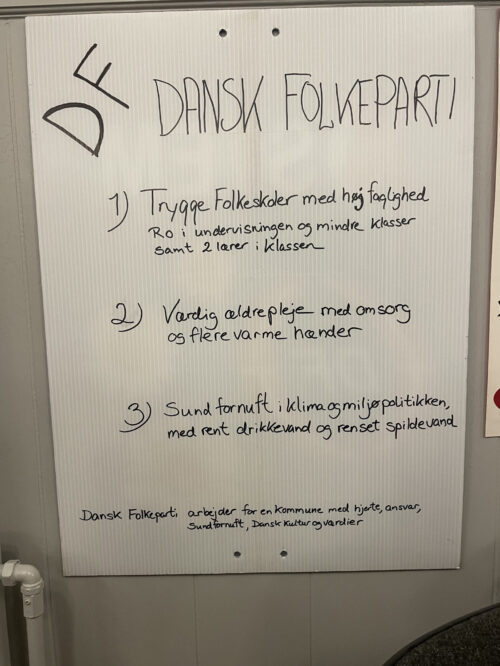 DF
DANSK FOLKEPARTI
1) Trygge Folkeskoler med høj faglighed
Ro i undervisningen og mindre klasser
samt 2 lærer i klassen
2) Værdig ældrepleje med omsorg
og flere varme hænder
3) Sund fornuft i klima og miljøpolitikken,
med rent drikkevand og renset spildevand
Dansk Folkeparti arbejder for en kommune med hjerte, ansvar,
Sundfornuft, Dansk Kultur og værdier